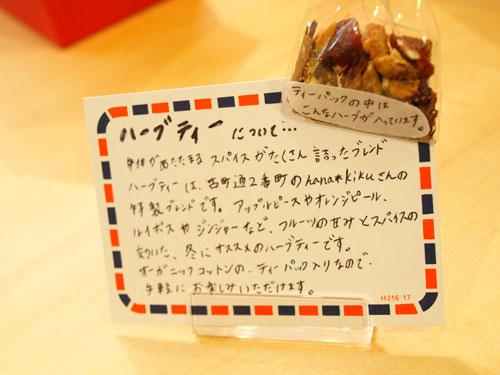 ティーパックの中は
こんなハーブが入っています。
ハーブティーについて…
身体があたたまるスパイスがたくさん詰ったブレンド
ハーブティーは、古町通2番町のhana*kikuさんの
特製ブレンドです。アップルピースやオレンジピール、
ルイボスやジンジャーなど、フルーツの甘みとスパイスの
効いた、冬にオススメのハーブティーです。
オーガニックコットンの、ティーパック入りなので、
手軽にお楽しみいただけます。
H216-17